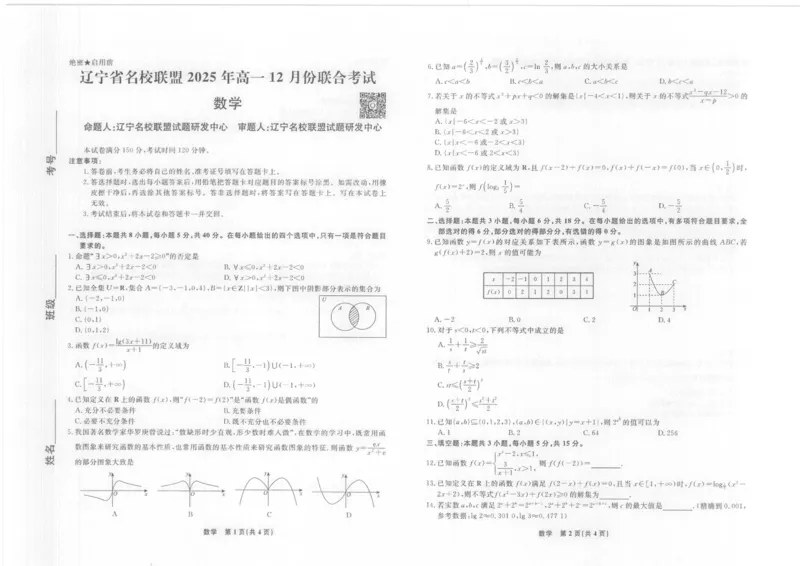 绝密★启用前
辽宁省名校联盟 2025 年高一 12 月份联合考试
数学
命题人:辽宁名校联盟试题研发中心 审题人:辽宁名校联盟试题研发中心
本试卷满分 150 分,考试时间 120 分钟。
注意事项:
1. 答卷前,考生务必将自己的姓名、准考证号填写在答题卡上。
2. 答选择题时,选出每小题答案后,用铅笔把答题卡对应题目的答案标号涂黑。如需改动,用橡
皮擦干净后,再选涂其他答案标号。答非选择题时,将答案写在答题卡上。写在本试卷上
无效。
3. 考试结束后,将本试卷和答题卡一并交回。
一、选择题:本题共 8 小题,每小题 5 分,共 40 分。在每小题给出的四个选项中,只有一项是符合题目
要求的。
1. 命题“∃x>0,x²+2x-2≥0”的否定是
A. ∃x>0,x²+2x-2<0 B. ∀x≤0,x²+2x-2<0
C. ∃x≤0,x²+2x-2<0 D. ∀x>0,x²+2x-2<0
2. 已知全集 U=R,集合 A={-3,-1,0,4},B={x∈Z||x|<3},则下图中阴影部分表示的集合为
A. {-2,-1,0}
B. {-1,0}
C. {0,1}
D. {0,1,2}
U
A B
3. 函数 f(x)=lg(3x+11)/(x+1) 的定义域为
A. (-11/3,+∞) B. [-11/3,-1)∪(-1,+∞)
C. [-11/3,+∞) D. (-11/3,-1)∪(-1,+∞)
4. 已知定义在 R 上的函数 f(x),则“f(-2)=f(2)”是“函数 f(x)是偶函数”的
A. 充分不必要条件 B. 充要条件
C. 必要不充分条件 D. 既不充分也不必要条件
5. 我国著名数学家华罗庚曾说过,“数缺形时少直观,形少数时难入微”,在数学的学习中,既常用函
数图象来研究函数的基本性质,也常用函数的基本性质来研究函数图象的特征. 则函数 y=ex/(x²+e)
的部分图象大致是
A B C D
数学 第 1 页(共 4 页)
考号
班级
姓名
6. 已知 a= ,b= ,c=ln 2/3,则 a,b,c 的大小关系是
A. c<a<b B. c<b<a C. a<b<c D. b<c<a
7. 若关于 x 的不等式 x²+px+q<0 的解集是{x|-4<x<1},则关于 x 的不等式 (x²-qx-12)/(x-p)>0 的
解集是
A. {x|-6<x<-2 或 x>3}
B. {x|-6<x<2 或 x>3}
C. {x|x<-6 或 -2<x<3}
D. {x|x<-6 或 2<x<3}
8. 已知函数 f(x)的定义域为 R,且 f(x-2)+f(x)=0,f(x)+f(-x)=f(0),当 x∈ 时,
A. 5/2 B. 5/4 C. -5/4 D. -5/2
二、选择题:本题共 3 小题,每小题 6 分,共 18 分。在每小题给出的选项中,有多项符合题目要求,全
部选对的得 6 分,部分选对的得部分分,有选错的得 0 分。
9. 已知函数 y=f(x)的对应关系如下表所示,函数 y=g(x)的图象是如图所示的曲线 ABC,若
g(f(x)+2)=2,则 x 的值可能为
x -2 -1 0 1 2 3 4
f(x) 0 2 1 2 0 3 1
A. -2 B. 0 C. 2 D. 4
10. 对于 s<0,t<0,下列不等式中成立的是
A. 1/s+1/t≥2/√st
B. s/t+t/s≥2
C. st≤((s+t)/2)²
D. ((s+t)/2)²≤(s²+t²)/2
11. 已知{a,b}⊆{0,1,2,3},(a,b)∈{(x,y)|y=x+1},则 的值可以为
A. 1 B. 2 C. 64 D. 256
三、填空题:本题共 3 小题,每小题 5 分,共 15 分。
12. 已知函数 f(x)={x²-2,x≤1, 3/(x+1),x>1, 则 f(f(-2))=______.
13. 已知定义在 R 上的函数 f(x)满足 f(2-x)+f(x)=0,且当 x∈[1,+∞)时,f(x)=log₂(x²-
2x+2),则不等式 f(x²-3x)+f(2x)≥0 的解集为______.
14. 若实数 a,b,c 满足 ,则 c 的最大值是______.(精确到 0.001,
参考数据,lg 2≈0.301 0,lg 3≈0.477 1)
数学 第 2 页(共 4 页)